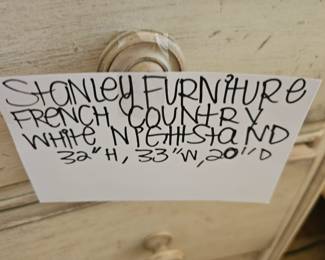 Stanley Furniture
French Country
White Nightstand
32"H, 33"W, 20"D